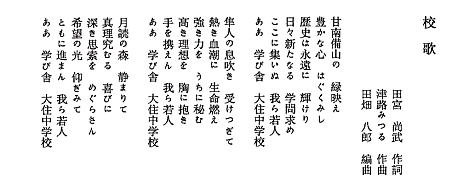 校歌
田宮 尚武 作詞
津路みつる 作曲
田畑 八郎 編曲
甘南備山の 緑映え
豊かな心 はぐくみし
歴史は永遠に 輝けり
日々新たなる 学問求め
ここに集いぬ 我ら若人
ああ 学び舎 大住中学校
隼人の息吹き 受けつぎて
熱き血潮に 生命燃え
強き力を うちに秘む
高き理想を 胸に抱き
手を携えん 我ら若人
ああ 学び舎 大住中学校
月読の森 静まりて
真理究むる 喜びに
深き思索を めぐらさん
希望の光 仰ぎみて
ともに進まん 我ら若人
ああ 学び舎 大住中学校